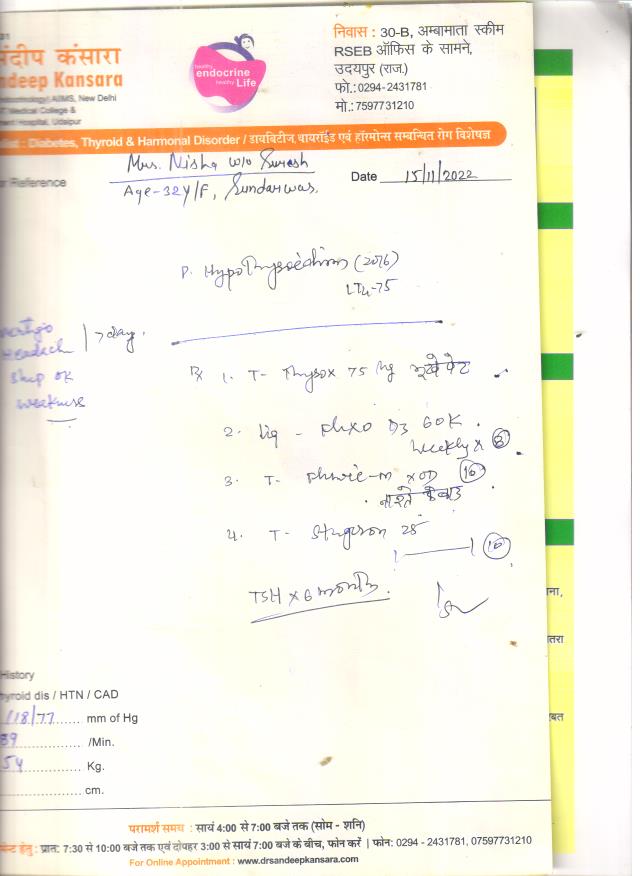 निवास : 30-B, अम्बामाता स्कीम
RSEB ऑफिस के सामने,
उदयपुर (राज.)
फो.:0294-2431781
मो.:7597731210
संदीप कंसारा
ndeep Kansara
AIIMS, New Delhi
Medical College &
Hospital, Udaipur
healthy
endocrine
healthy Life
: Diabetes, Thyroid & Harmonal Disorder / डायबिटीज, थायरॉइड एवं हॉरमोन्स सम्बन्धित रोग विशेषज्ञ
r Reference
Mrs. Nisha w/o Suresh
Age-32Y/F, Sundarwas.
Date 15/11/2022
P. Hypothyroidism (2016)
LT4-75
vertigo
Headach
Slup ok
weakness
Rx 1. T- Thyrox 75 भूखे पेट
2. Liq - D3 60K
weekly x 8
3. T- x OD 10
4. T- Stugeron 25
10
TSH x 6 months.
History
hyroid dis / HTN / CAD
118/77 mm of Hg
89 /Min.
54 Kg.
cm.
ना,
तरा
बत
परामर्श समय : सायं 4:00 से 7:00 बजे तक (सोम - शनि)
हेतु : प्रात: 7:30 से 10:00 बजे तक एवं दोपहर 3:00 से सायं 7:00 बजे के बीच, फोन करें | फोन: 0294 - 2431781, 07597731210
For Online Appointment : www.drsandeepkansara.com